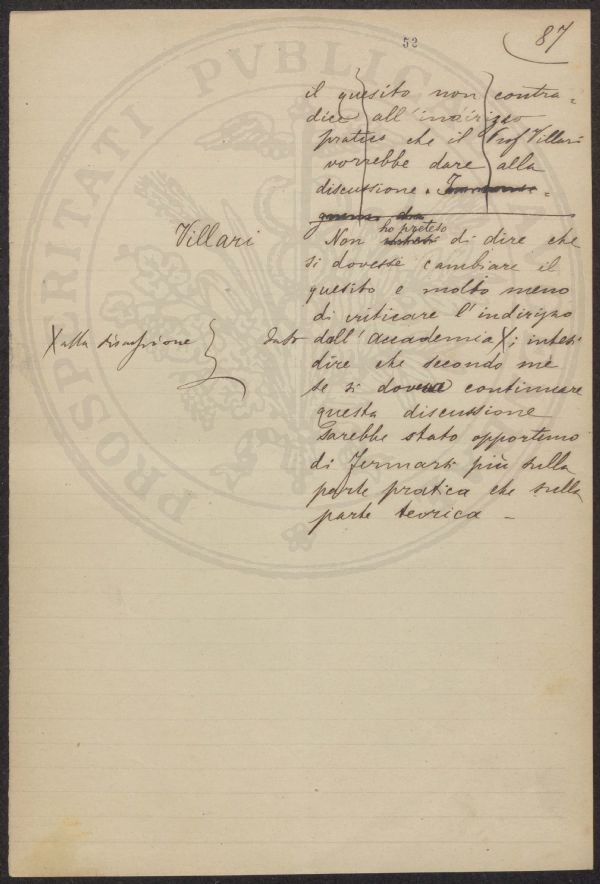 52
87
il quesito non contra=
dice all'indirizzo
pratico che il Prof Villari
vorrebbe dare alla
discussione.
Villari
ho preteso
Non di dire che
si dovesse cambiare il
quesito e molto meno
di criticare l'indirizzo
X alla discussione
dato dall'accademia X; intesi
dire che secondo me
se si doveva continuare
questa discussione
sarebbe stato opportuno
di fermarsi più sulla
parte pratica che sulla
parte teorica –
PROSPERITATI PVBLICAE